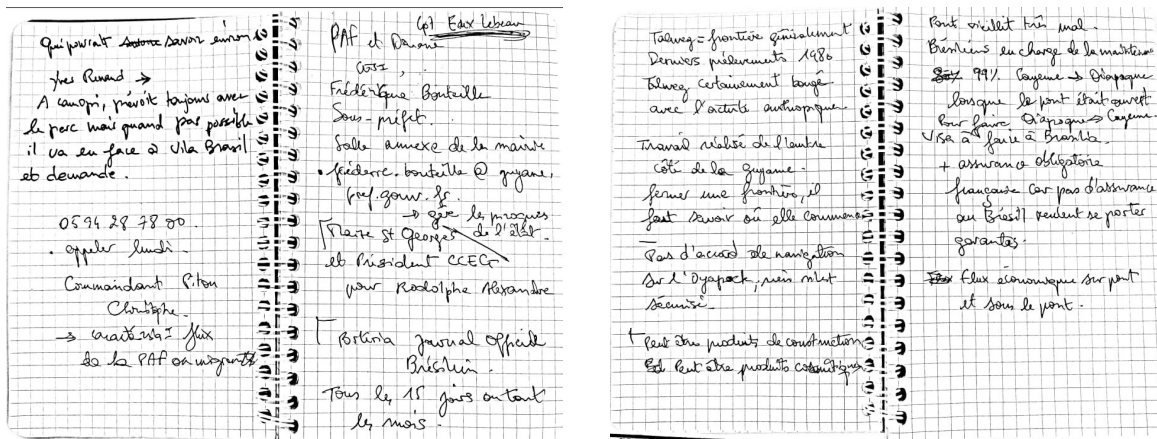 Qui pourrait savoir environ
Yves Renard →
A camopi, prévoit toujours avec
le parc mais quand pas possible
il va en face à Vila Brasil
et demande.
0594 28 78 00.
• appeler lundi.
Commandant Piton
Christophe.
→ flux
de la PAF ou migrants
PAF et Douane
Frédérique Bouteille
Sous-préfet.
Salle annexe de la mairie
• frederic.bouteille@guyane.
pref.gouv.fr
→ gère les
de l'état.
Maire St Georges
et Président CCEG
pour Rodolphe Alexandre
journal officiel
Brésilien.
Tous les 15 jours ou tout
les mois.
Talweg = frontière généralement
Derniers prélèvements 1980
talweg certainement bougé
avec l'activité anthropique.
Travail réalisé de l'autre
côté de la guyane.
fermer une frontière, il
faut savoir où elle commence
Pas d'accord de navigation
sur l'Oyapock, rien n'est
sécurisé.
Peut être produits de construction
Peut être produits cosmétiques
Pont vieillit très mal.
Brésiliens en charge de la maintenance
99% Cayenne → Oiapoque
lorsque le pont était ouvert
Pour faire Oiapoque → Cayenne.
Visa à faire à Brasilia.
+ assurance obligatoire
française car pas d'assurance
au Brésil veulent se porter
garantes.
flux économique sur pont
et sous le pont.